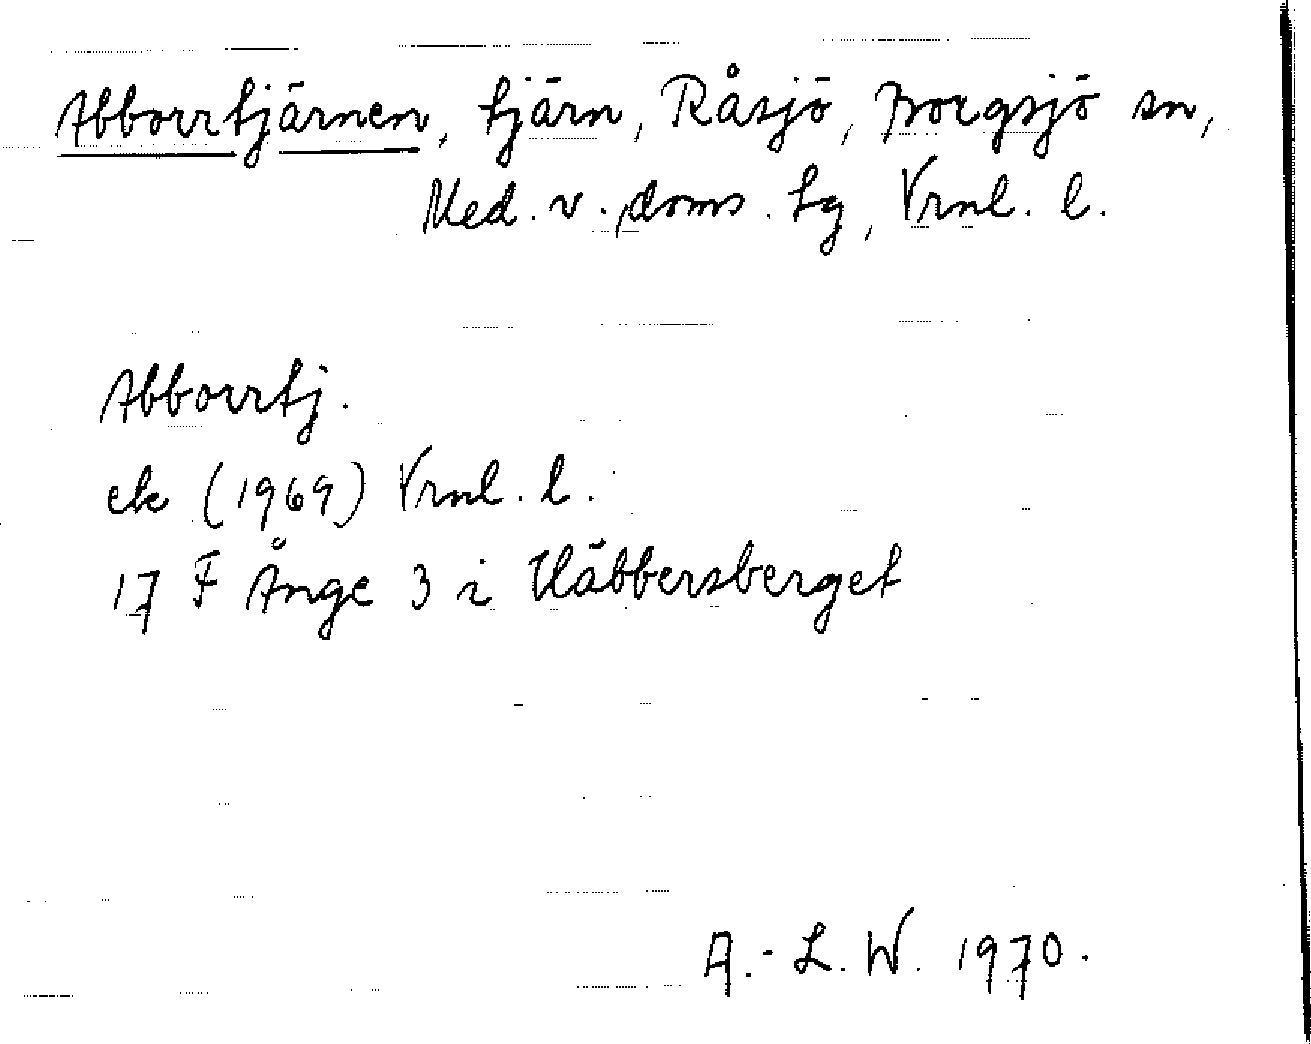 Abborrtjärnen, tjärn, Råsjö, Borgsjö sn,
Med. v. doms. tg, Vrnl. l.
Abborrtj.
ek (1969) Vrnl. l.
17 F Ånge 3 i Kläbbersberget
A.-L. W. 1970.